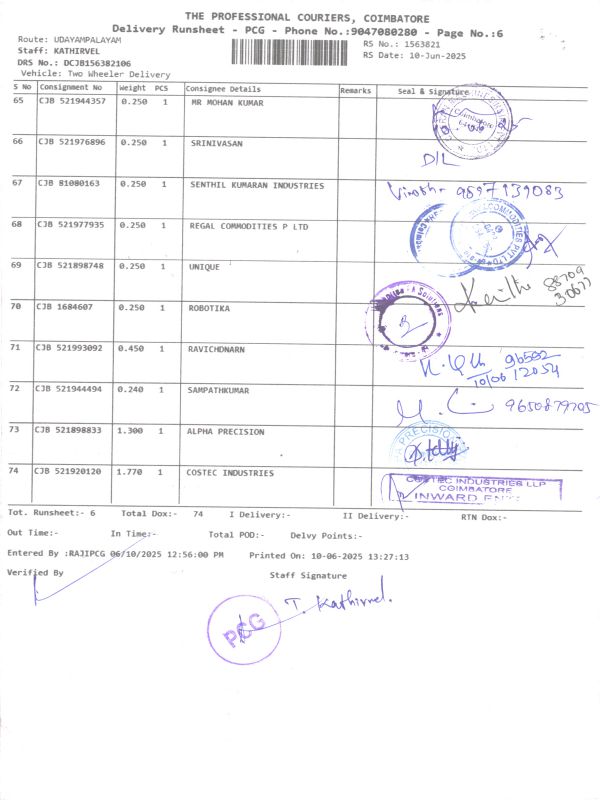 THE PROFESSIONAL COURIERS, COIMBATORE
Delivery Runsheet - PCG - Phone No.:9047080280 - Page No.:6
Route: UDAYAMPALAYAM
RS No.: 1563821
Staff: KATHIRVEL
RS Date: 10-Jun-2025
DRS No.: DCJB156382106
Vehicle: Two Wheeler Delivery
S No Consignment No Weight PCS Consignee Details Remarks Seal & Signature
65 CJB 521944357 0.250 1 MR MOHAN KUMAR
Coimbatore
66 CJB 521976896 0.250 1 SRINIVASAN
D/L
67 CJB 81080163 0.250 1 SENTHIL KUMARAN INDUSTRIES
9897139083
68 CJB 521977935 0.250 1 REGAL COMMODITIES P LTD
69 CJB 521898748 0.250 1 UNIQUE
88709
30677
70 CJB 1684607 0.250 1 ROBOTIKA
71 CJB 521993092 0.450 1 RAVICHDNARN
72 CJB 521944494 0.240 1 SAMPATHKUMAR
9650879705
73 CJB 521898833 1.300 1 ALPHA PRECISION
PRECISION
74 CJB 521920120 1.770 1 COSTEC INDUSTRIES
COSTEC INDUSTRIES LLP
COIMBATORE
INWARD
Tot. Runsheet:- 6 Total Dox:- 74 I Delivery:- II Delivery:- RTN Dox:-
Out Time:- In Time:- Total POD:- Delvy Points:-
Entered By :RAJIPCG 06/10/2025 12:56:00 PM Printed On: 10-06-2025 13:27:13
Verified By Staff Signature
T. Kathirvel.
PCG